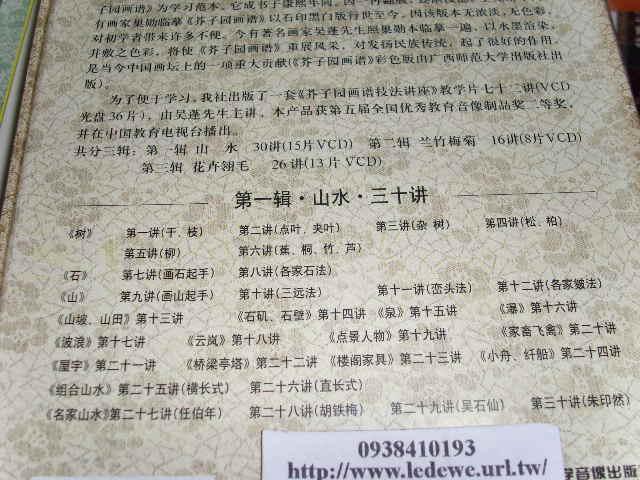 子园画谱》为学习范本。它成书于康熙年间。
有画家巢勋临摹《芥子园画谱》以石印黑白版行世至今。因该版本无浓淡、无色彩,
对初学者带来许多不便。今有著名画家吴蓬先生照巢勋本临摹一遍,以水墨渲染,
并敷之色彩,将使《芥子园画谱》重展风采,对发扬民族传统,起了很好的作用。
是当今中国画坛上的一项重大贡献(《芥子园画谱》彩色版由广西师范大学出版社出
版)。
为了便于学习。我社出版了一套《芥子园画谱技法讲座》教学片七十二讲(VCD
光盘36片),由吴蓬先生主讲。本产品获第五届全国优秀教育音像制品奖二等奖,
并在中国教育电视台播出。
共分三辑: 第一辑 山 水 30讲(15片VCD) 第二辑 兰竹梅菊 16讲(8片VCD)
第三辑 花卉翎毛 26讲(13片VCD)
第一辑·山水·三十讲
《树》 第一讲(干、枝) 第二讲(点叶、夹叶) 第三讲(杂 树) 第四讲(松、柏)
第五讲(柳) 第六讲(蕉、桐、竹、芦)
《石》 第七讲(画石起手) 第八讲(各家石法)
《山》 第九讲(画山起手) 第十讲(三远法) 第十一讲(峦头法) 第十二讲(各家皴法)
《山坡、山田》第十三讲 《石矶、石壁》第十四讲 《泉》第十五讲 《瀑》第十六讲
《波浪》第十七讲 《云岚》第十八讲 《点景人物》第十九讲 《家畜飞禽》第二十讲
《屋宇》第二十一讲 《桥梁亭塔》第二十二讲 《楼阁家具》第二十三讲 《小舟、纤船》第二十四讲
《组合山水》第二十五讲(横长式) 第二十六讲(直长式)
《名家山水》第二十七讲(任伯年) 第二十八讲(胡铁梅) 第二十九讲(吴石仙) 第三十讲(朱印然)
0938410193
http://www.ledewe.url.tw/
学音像出版